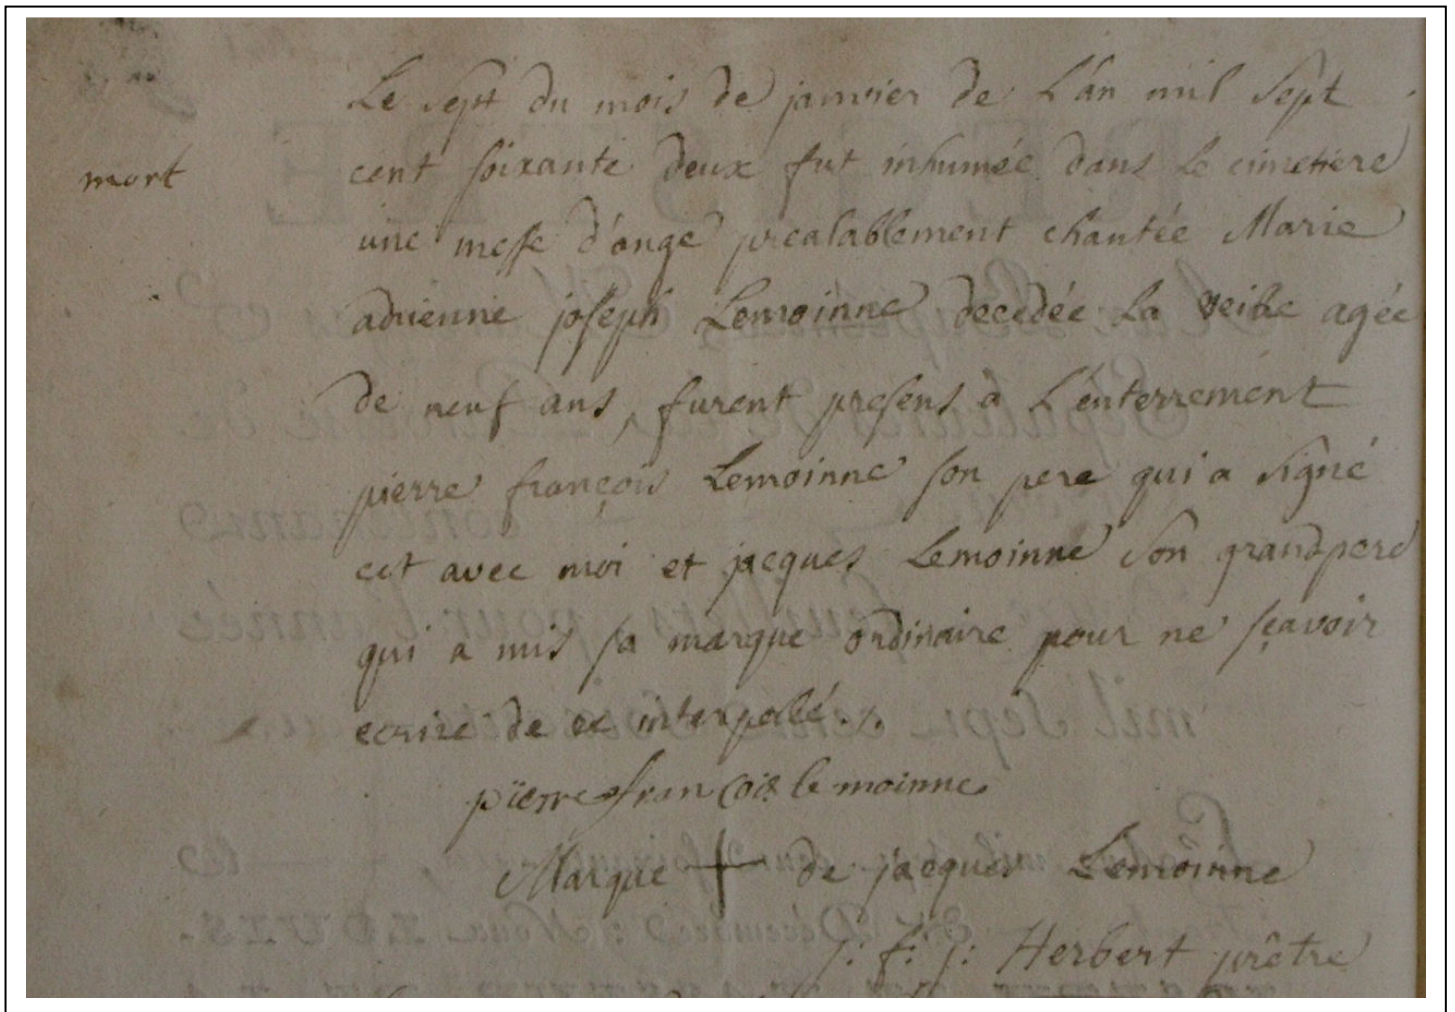 Le sept du mois de janvier de L'an mil sept
mort
cent soixante deux fut inhumée dans le cimetiere
une messe d'ange prealablement chantée Marie
adrienne joseph Lemoinne decedée la veille agée
de neuf ans, furent presens à L'enterrement
pierre françois Lemoinne son pere qui a signé
cet avec moi et jacques Lemoinne son grandpere
qui a mis sa marque ordinaire pour ne sçavoir
ecrire de ce interpellé ./.
pierre françois le moinne
Marque + de jacques Lemoinne
Herbert prêtre